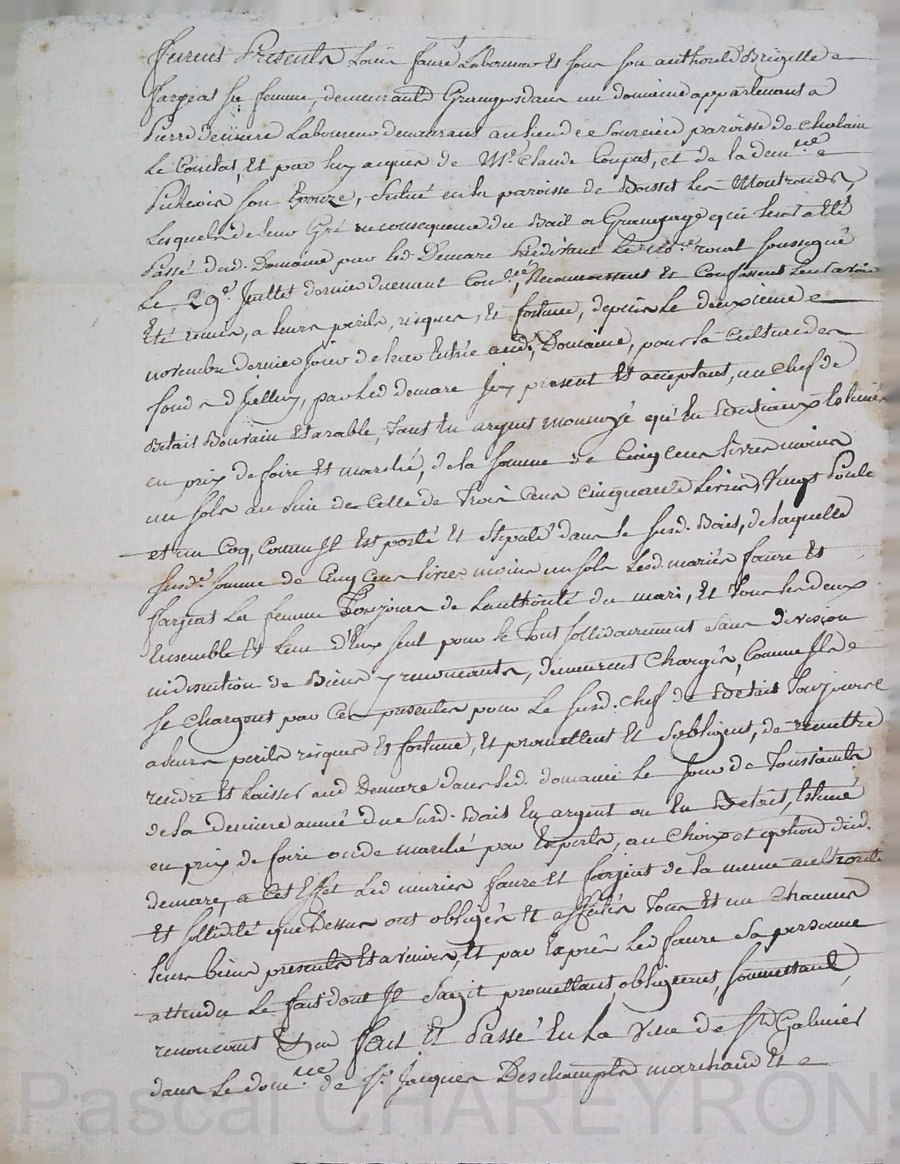 Furent Presents Louis faure Laboureur Et sous son authorité Brigitte
fargeat sa femme, demeurants Grangers dans un domaine appartenant a
Pierre demare Laboureur demeurant au lieu de paroisse de Chalain
Le Comtal, Et par luy acquis de Mr. Claude Coupat, et de la dem.lle
son Epouze, situé en la paroisse de Boisset Les Montrond,
Lesquels de leur Gré en consequence du Bail a Grangeage qui leur a Eté
Passé dud. Domaine par led. Demare devant le no.re soussigné
Le 29e. Juillet dernier duement Con.lé, Reconnoissent Et Confessent leur avoir
Eté remis, a leurs perils, risques, Et fortune, depuis le deuxieme
novembre dernier jour de leur Entrée aud. Domaine, pour la Culture des
fonds d'Icelluy, par led demare Icy present Et acceptant, un Chef de
Betail Bouvain Et arable, tant En argent monnoyé qu'En Bestiaux Estimés
en prix de foire Et marché, de la somme de Cinq Cens livres moins
un sols au lieu de Celle de Trois Cens Cinquante Livres, Vingt Poule
et un Coq, Comme Il Est porté Et stipulé dans le susd. Bail, de laquelle
susd.e somme de Cinq Cens livres moins un sols lesd. mariés faure Et
fargeat La femme Toujours de Lauthorité du mari, Et Tous les deux
Ensemble Et L'un d'Eux seul pour le Tout sollidairement sans division
ni discution de Biens y renonçants, demeurent Chargés, Comme Ils
se Chargent par Ces presentes pour Le susd. Chef de Betail Toujours
a leurs perils risques Et fortune, Et promettent Et s'obligent, de remettre
rendre Et laisser aud Demare dans led. domaine le Jour de Toussaints
de la derniere année du susd. Bail En argent ou En Betail, Estimé
en prix de foire ou de marché par Experts, au Choix et option dud.
demare, a Cet Effet Led mariés faure Et farjeat de la meme authorité
Et sollidité que Dessus ont obligés Et affectés Tous Et un Chacuns
leurs biens presents Et avenirs, Et par Exprès led faure sa personne
attendu le fait dont Il s'agit promettans, obligeans, soumettant,
renoncant &a Fait Et Passé En La Ville de St. Galmier
dans Le dom.lle de Sr. Jacques Deschamps marchand Et
Pascal CHAREYRON